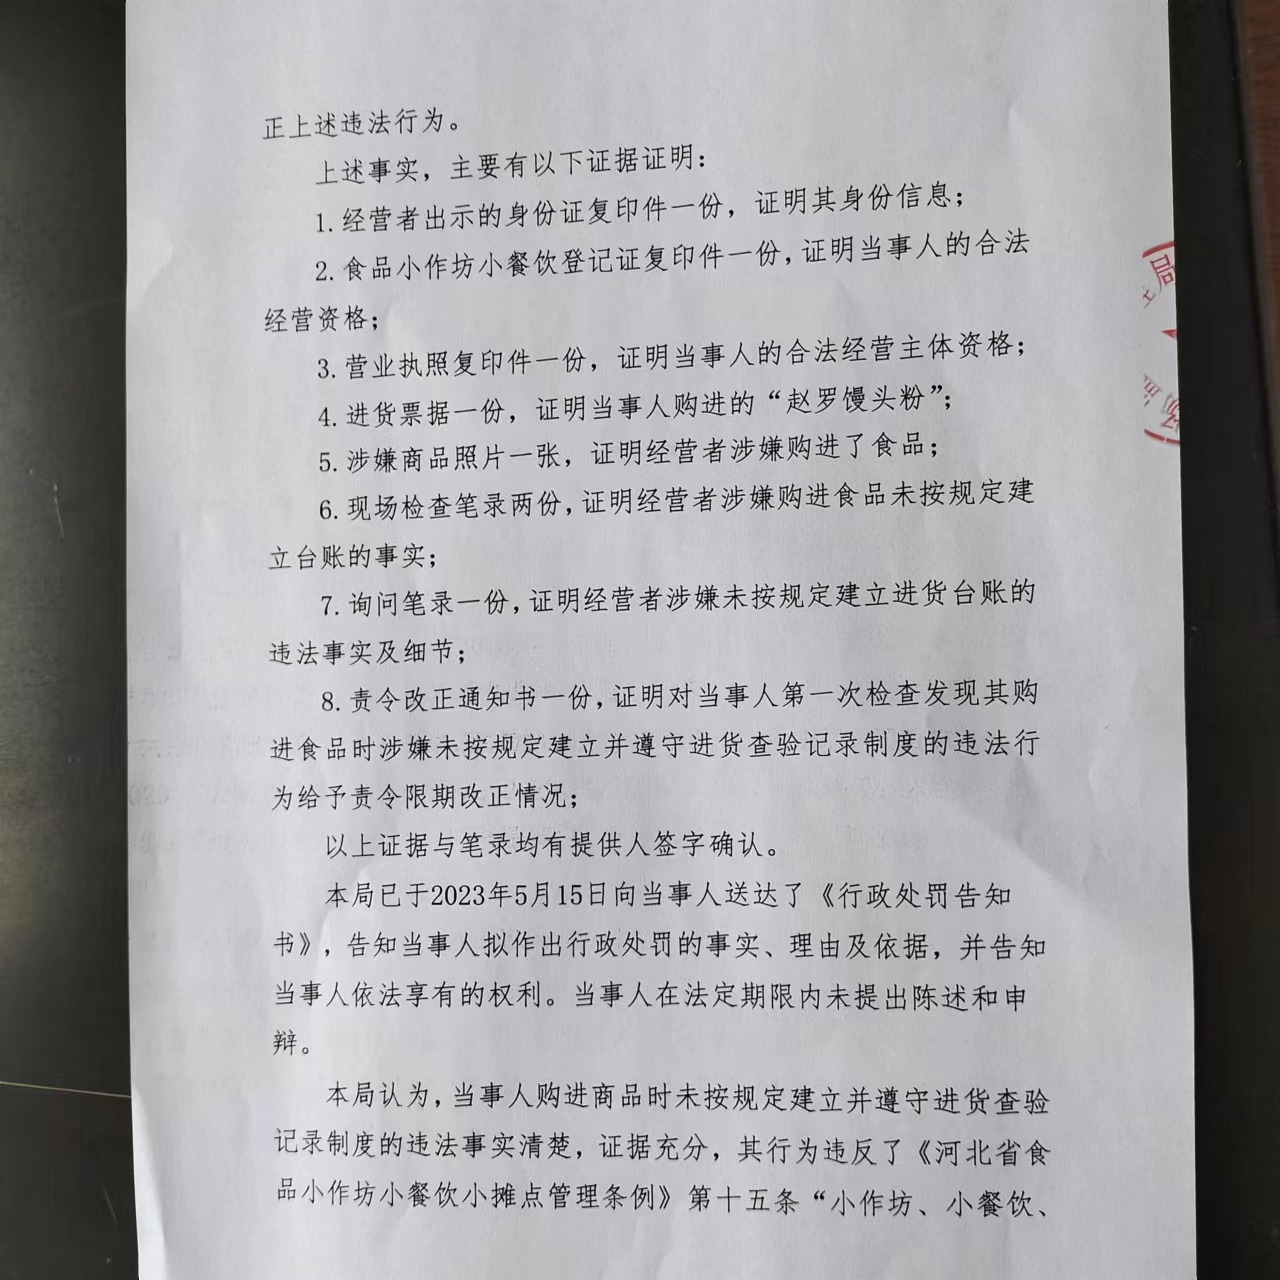 正上述违法行为。
上述事实，主要有以下证据证明：
1.经营者出示的身份证复印件一份，证明其身份信息；
2.食品小作坊小餐饮登记证复印件一份，证明当事人的合法
经营资格；
3.营业执照复印件一份，证明当事人的合法经营主体资格；
4.进货票据一份，证明当事人购进的“赵罗馒头粉”；
5.涉嫌商品照片一张，证明经营者涉嫌购进了食品；
6.现场检查笔录两份，证明经营者涉嫌购进食品未按规定建
立台账的事实；
7.询问笔录一份，证明经营者涉嫌未按规定建立进货台账的
违法事实及细节；
8.责令改正通知书一份，证明对当事人第一次检查发现其购
进食品时涉嫌未按规定建立并遵守进货查验记录制度的违法行
为给予责令限期改正情况；
以上证据与笔录均有提供人签字确认。
本局已于2023年5月15日向当事人送达了《行政处罚告知
书》，告知当事人拟作出行政处罚的事实、理由及依据，并告知
当事人依法享有的权利。当事人在法定期限内未提出陈述和申
辩。
本局认为，当事人购进商品时未按规定建立并遵守进货查验
记录制度的违法事实清楚，证据充分，其行为违反了《河北省食
品小作坊小餐饮小摊点管理条例》第十五条“小作坊、小餐饮、
局